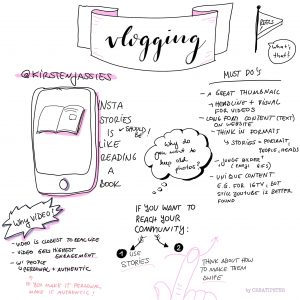 vlogging
REELS
what's that?
@KIRSTENJASSIES
INSTA
STORIES
IS should BE!
LIKE
READING
A
BOOK
MUST DO'S
- A GREAT THUMBNAIL
→ HEADLINE + VISUAL
FOR VIDEOS
- LONG FORM CONTENT (TEXT)
ON WEBSITE
- THINK IN FORMATS
→ STORIES = PORTRAIT,
PEOPLE, HEADS
- UNIQUE CONTENT
E.G. FOR IGTV, BUT
STILL YOUTUBE IS BETTER
FOUND
Why do
you want to
keep old
photos?
Why VIDEO?
- VIDEO IS CLOSEST TO REAL LIFE
- VIDEO GETS HIGHEST
ENGAGEMENT
- W/ PEOPLE
PERSONAL + AUTHENTIC
IF YOU MAKE IT PERSONAL,
MAKE IT AUTHENTIC!
IF YOU WANT TO
REACH YOUR
COMMUNITY:
1 USE
STORIES
2
THINK ABOUT HOW
TO MAKE THEM
SWIPE